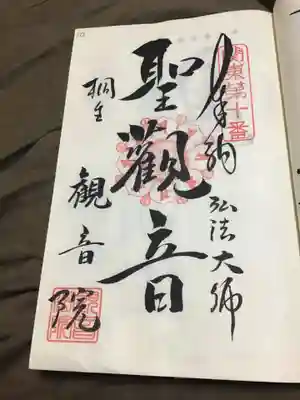 関東第十番
奉納 弘法大师
聖觀音
桐生 観音院